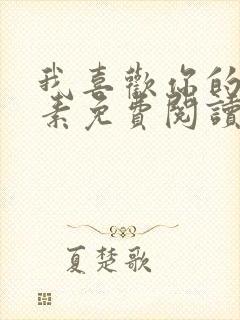 我喜歡你的
素免費閱讀
夏楚歌